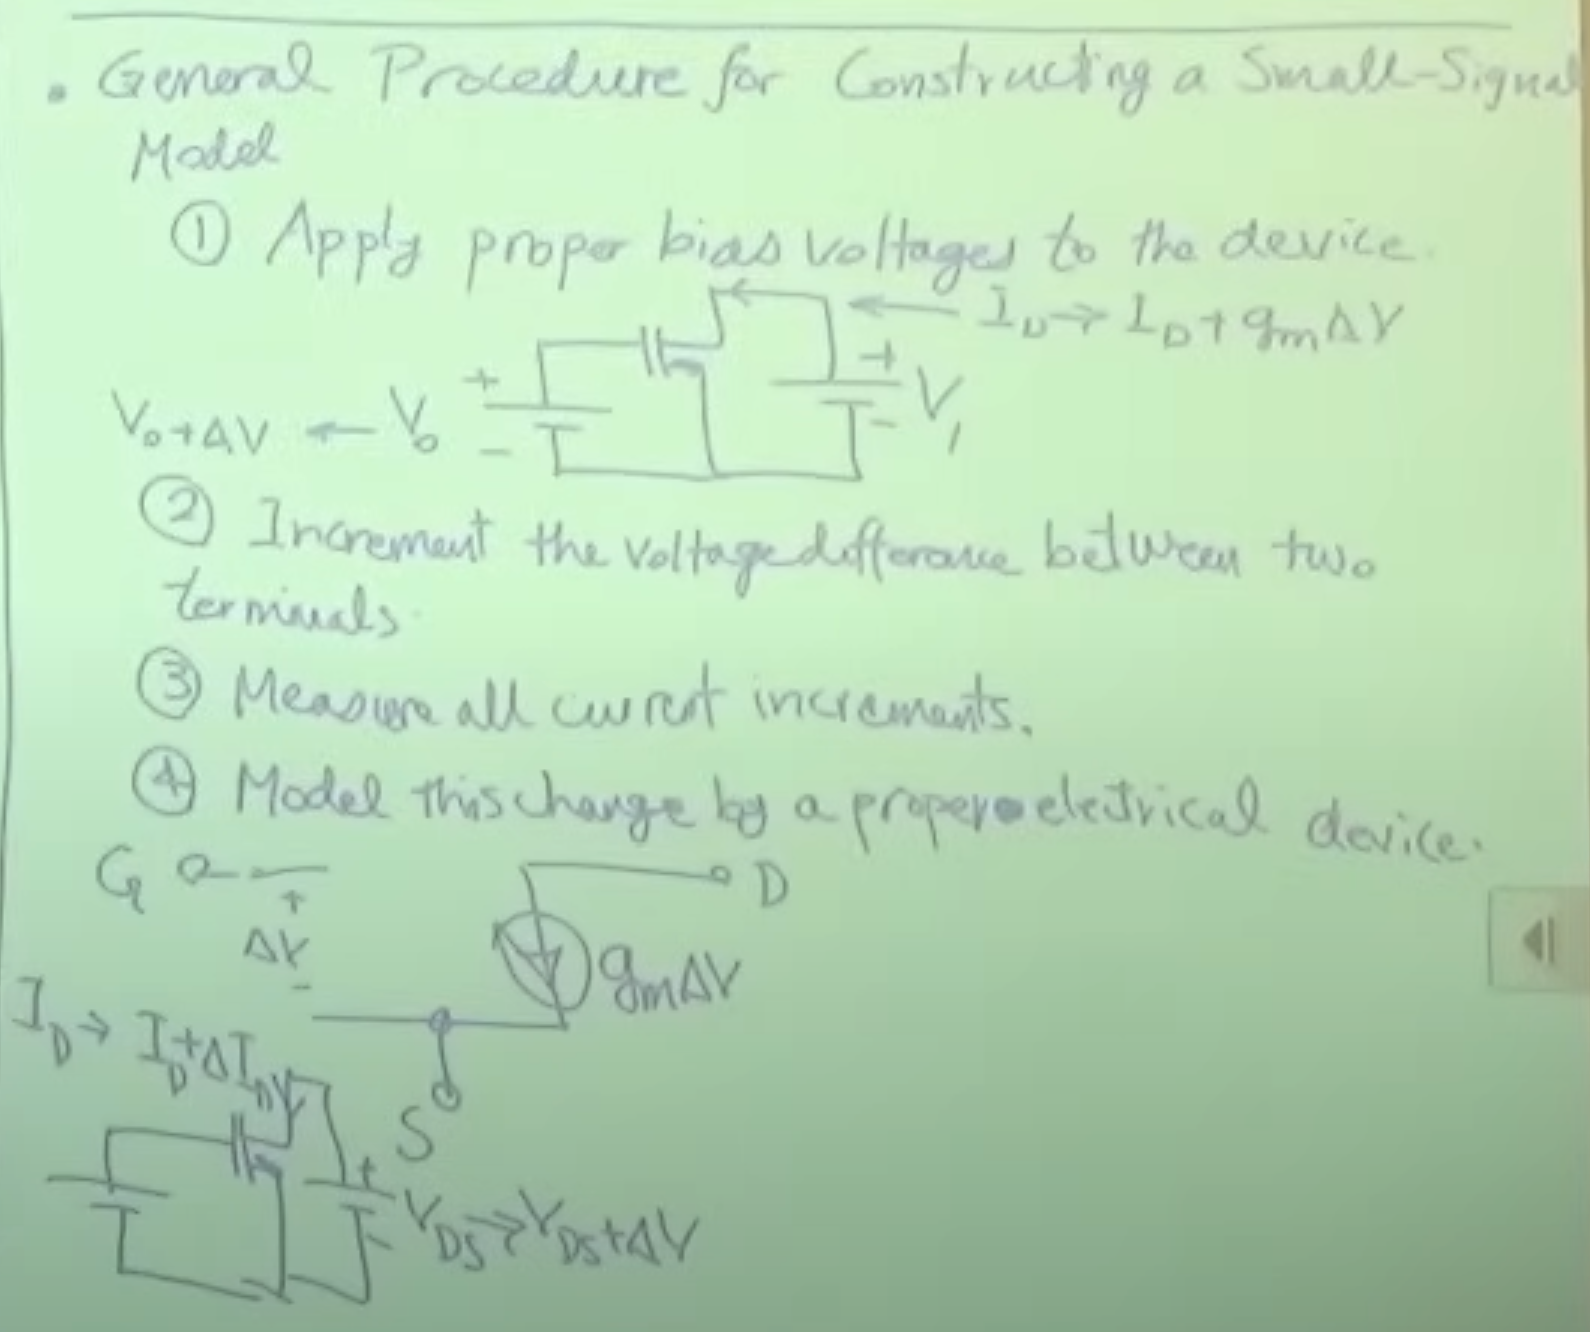 • General Procedure for Constructing a Small-Signal
Model
① Apply proper bias voltages to the device.
I_D → I_D + g_m ΔV
V_0 + ΔV ← V_0 + -
+ - V_1
② Increment the voltage difference between two
terminals.
③ Measure all current increments.
④ Model this change by a proper electrical device.
G D
+
ΔV
-
g_m ΔV
I_D → I_D + ΔI_D
S
+
-
V_DS → V_DS + ΔV